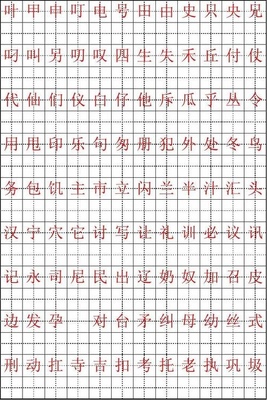 叶甲申叮电号田由史只央兄
叼叫另叨叹四生失禾丘付仗
代仙们仪白仔他斥瓜乎丛令
用甩印乐句匆册犯外处冬鸟
务包饥主市立闪兰半汁汇头
汉宁穴它讨写让礼训必议讯
记永司尼民出辽奶奴加召皮
边发孕 对台矛纠母幼丝式
刑动扛寺吉扣考托老执巩圾